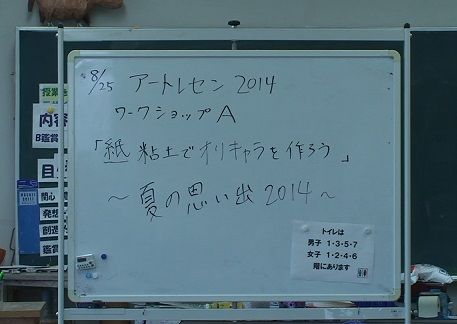 8/25 アートレセン 2014
ワークショップA
「紙粘土でオリキャラを作ろう」
～夏の思い出2014～
トイレは
男子 1・3・5・7
女子 1・2・4・6
階にあります
授業
内容
B鑑賞
目
関心
発想
創造
鑑賞